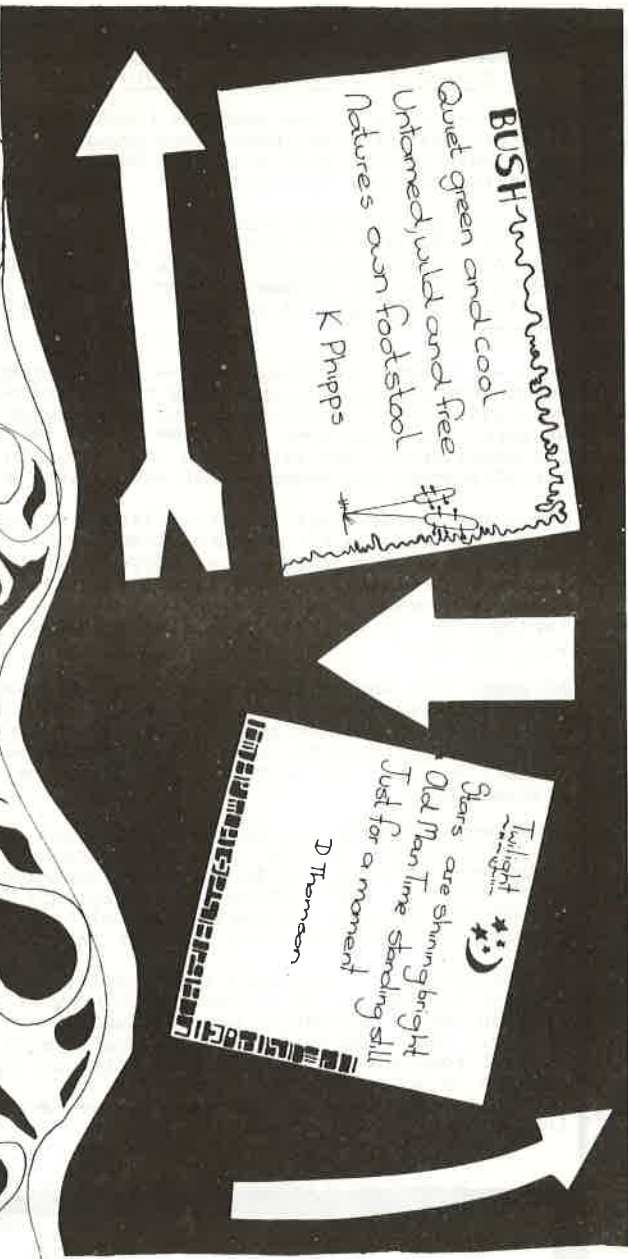 BUSH
Quiet green and cool
Untamed, wild and free
Natures own footstool
K Phipps
Twilight
Stars are shining bright
Old Man Time standing still
Just for a moment
D Thomson